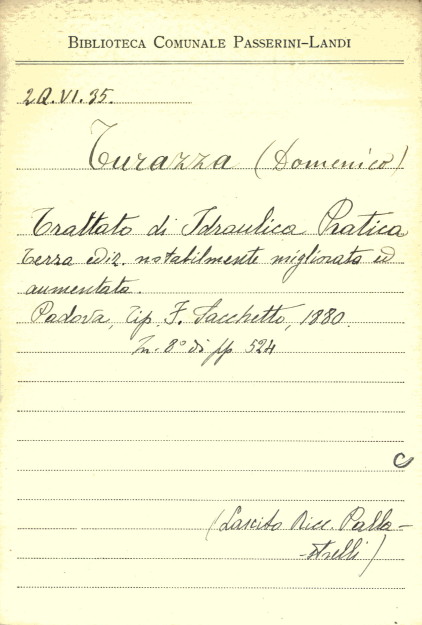 BIBLIOTECA COMUNALE PASSERINI-LANDI
2Q.VI.35.
Turazza (Domenico)
Trattato di Idraulica Pratica
Terza ediz. notabilmente migliorata ed
aumentata.
Padova, Tip. F. Sacchetto, 1880.
In-8° di pp 524
C
(Lascito Ricc. Palla-
-strelli)